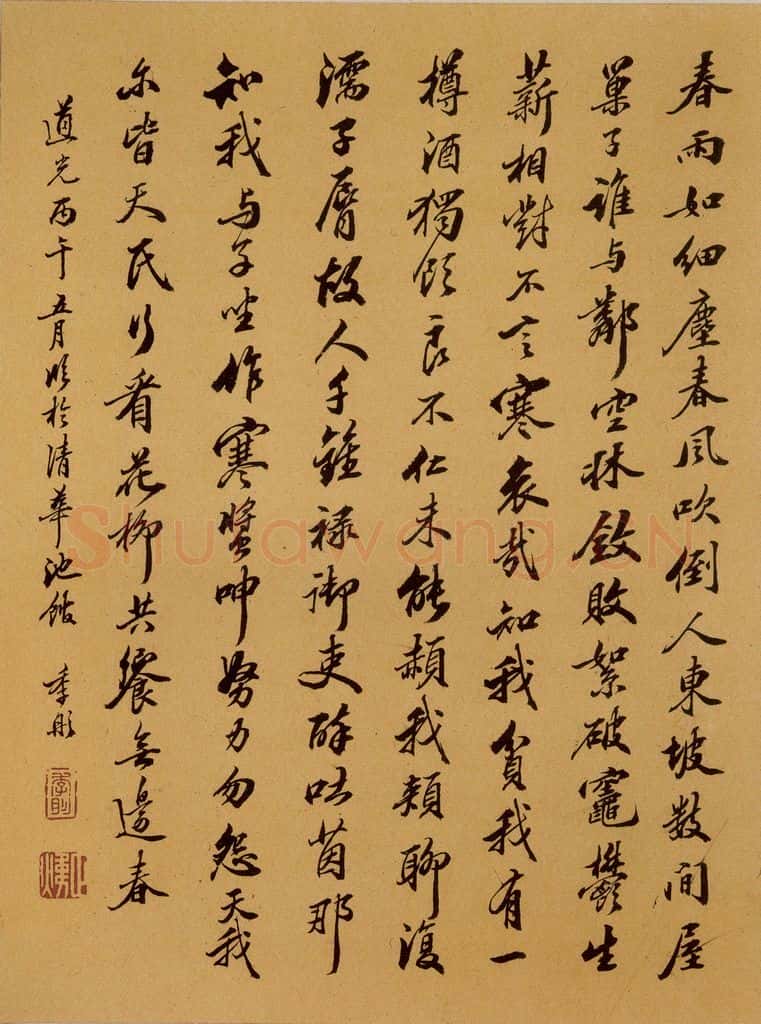 春雨如細塵春風吹倒人東坡数间屋
巢子誰与鄰空牀斂敗絮破竈鬱生
薪相對不言寒哀哉知我貧我有一
樽酒獨飲良不仁未能頳我頰聊復
濡子脣故人千鍾祿御吏醉吐茵那
知我与子坐作寒螿呻努力勿怨天我
尔皆天民行看花柳共饗無邊春
道光丙午五月临於清華池館 季彤
Shufawang.CN